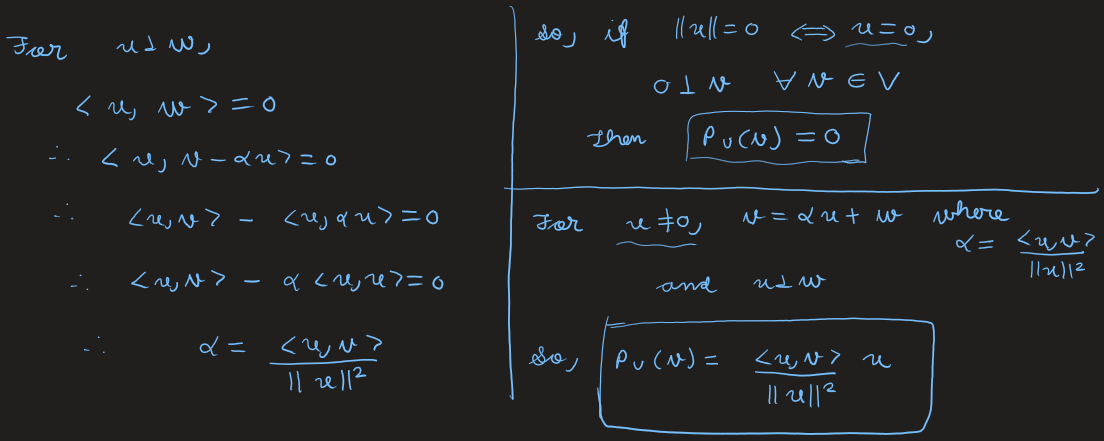 For u ⊥ w,
< u, w > = 0
∴ < u, v - αu > = 0
∴ <u,v> - <u, αu> = 0
∴ <u,v> - α <u,u> = 0
∴ α = <u,v> / ||u||²
so, if ||u|| = 0 ⟺ u = 0,
0 ⊥ v ∀ v ∈ V
Then P_U(v) = 0
For u ≠ 0, v = αu + w where
α = <u,v> / ||u||²
and u ⊥ w
So, P_U(v) = <u,v> / ||u||² u